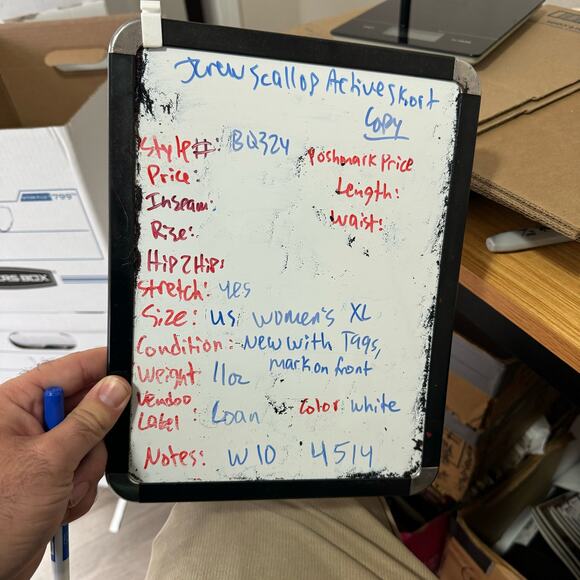 Jcrew Scallop Active Skort
Copy
Style #: BQ324
Poshmark Price
Price:
Length:
Inseam:
Waist:
Rise:
Hip 2 Hip:
Stretch: yes
Size: US women's XL
Condition: New with Tags,
mark on front
Weight 11oz
Vendoo
Label: Loan
Color white
Notes: W10 4514